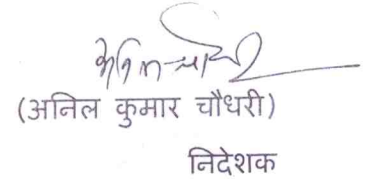 (अनिल कुमार चौधरी)
निदेशक